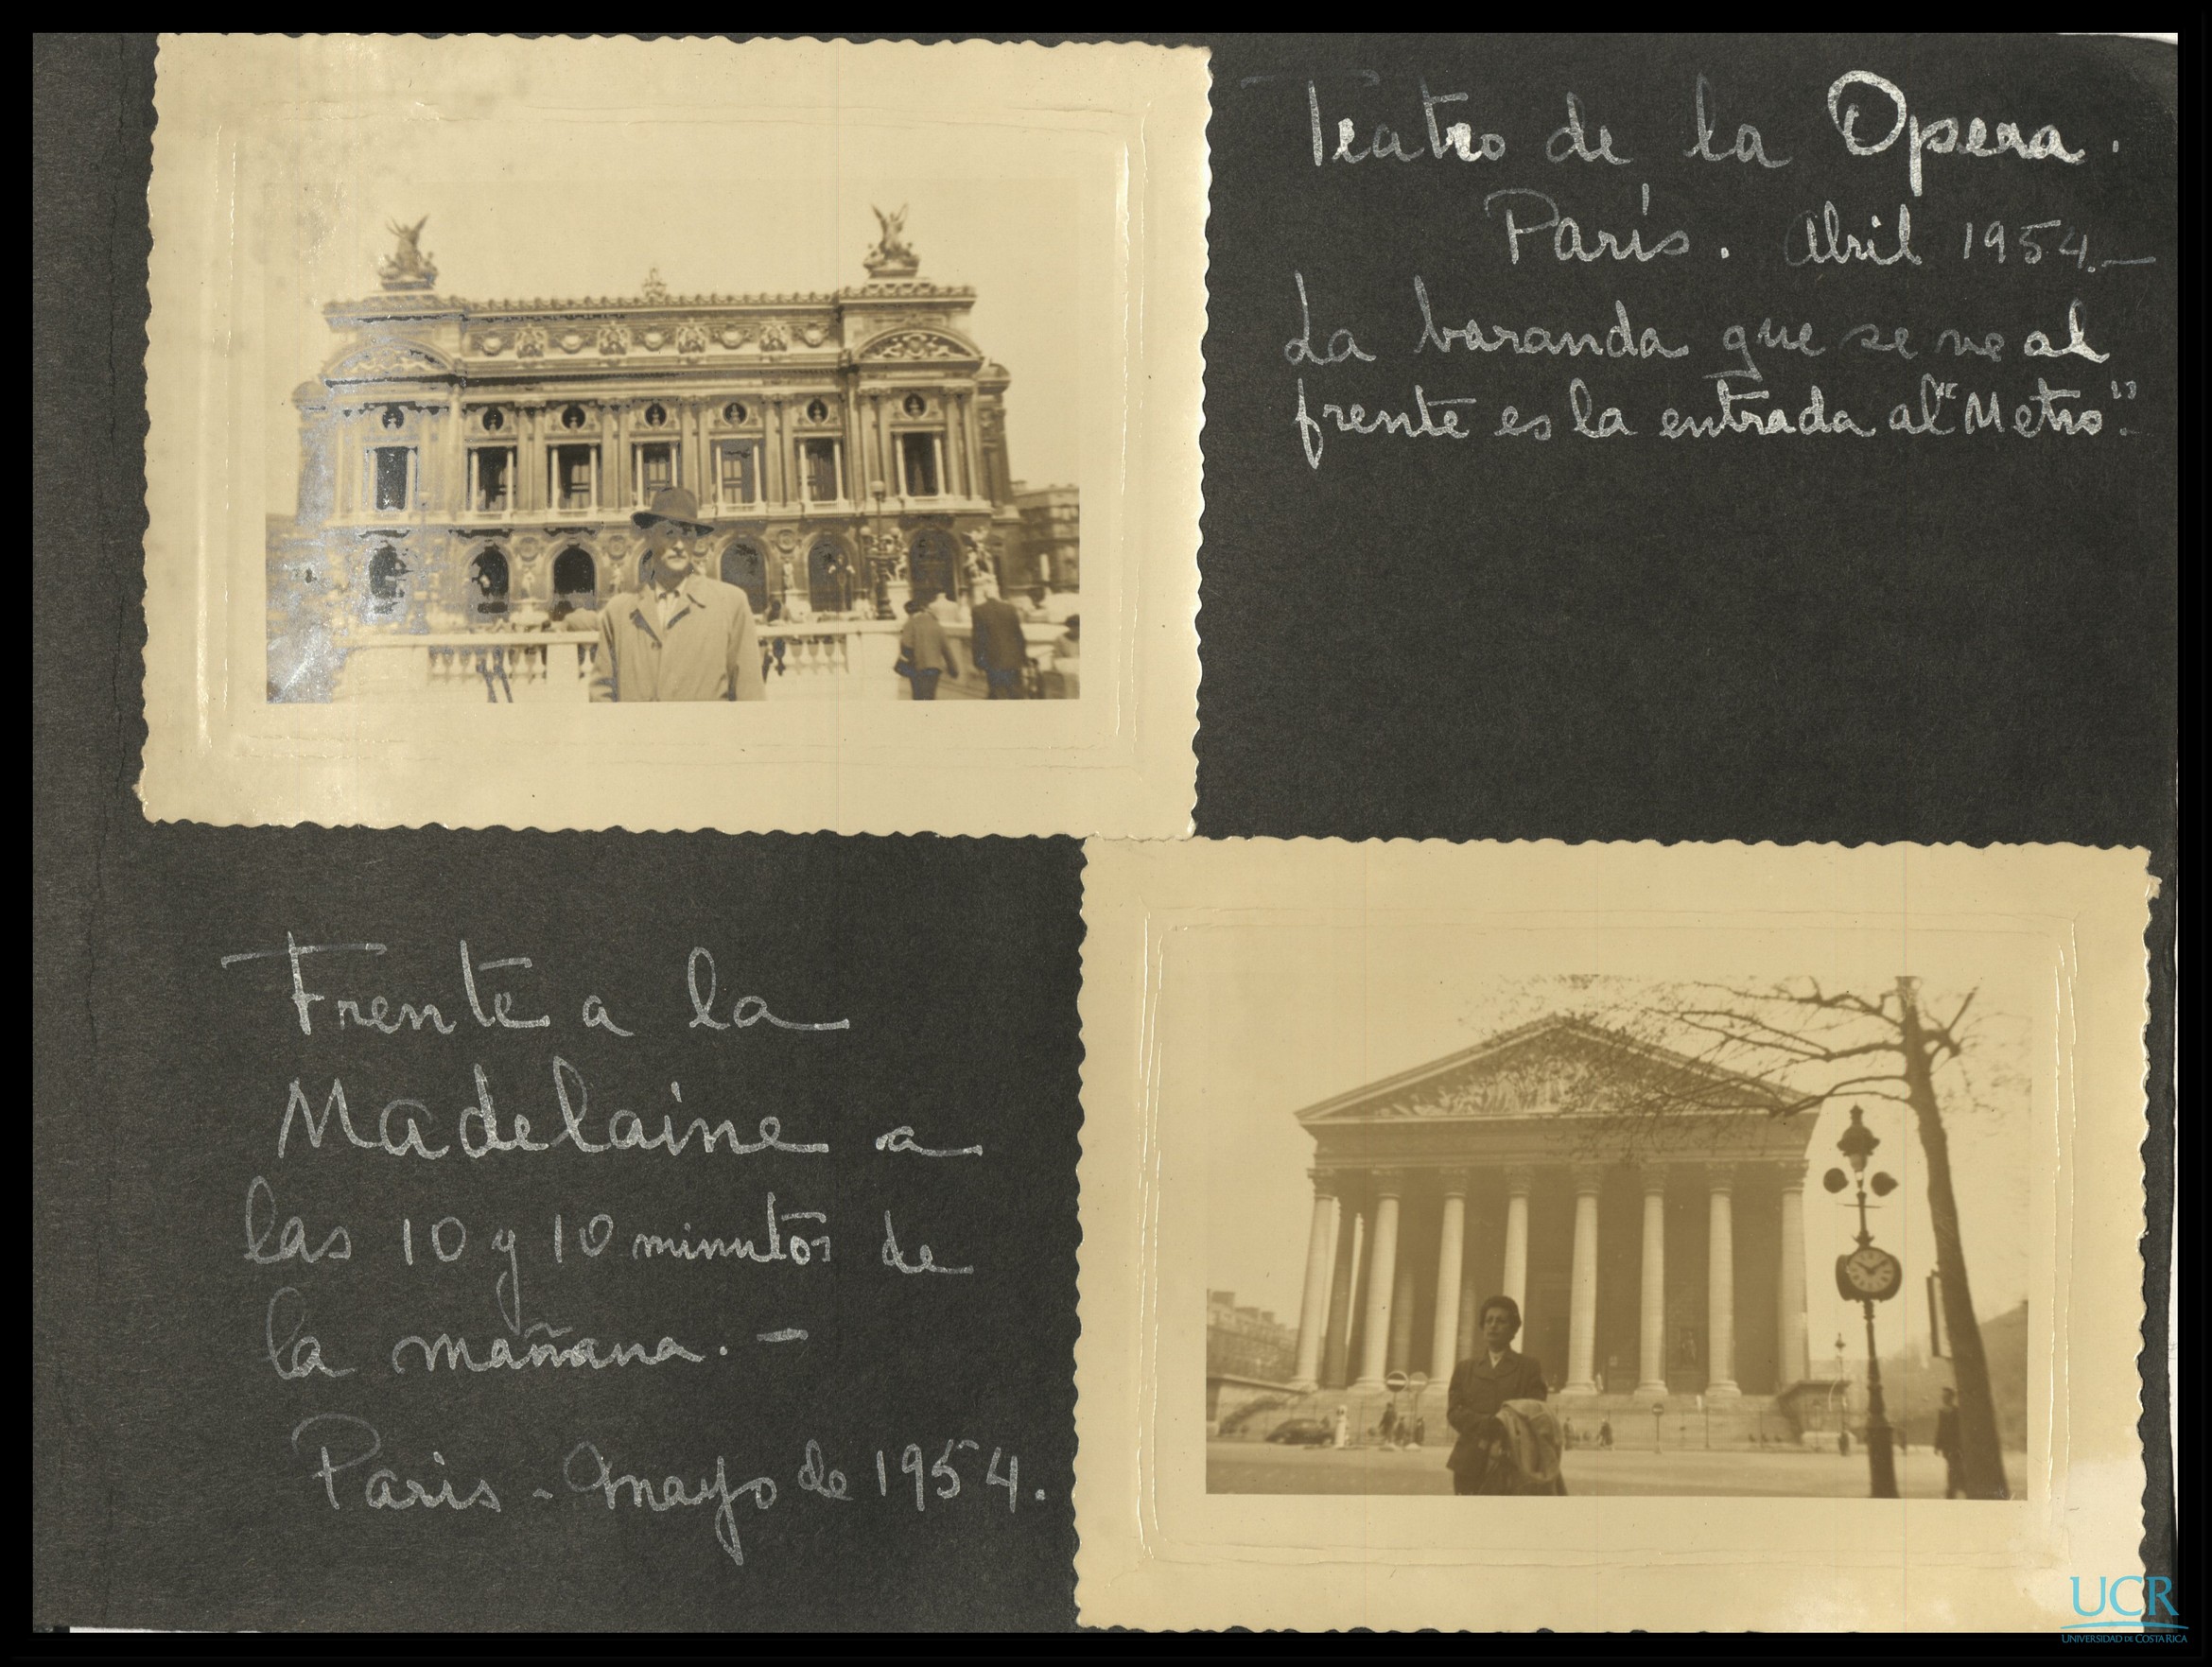 Teatro de la Opera.
París. Abril 1954.—
La baranda que se ve al
frente es la entrada al "Metro".
Frente a la
Madelaine a
las 10 y 10 minutos de
la mañana.—
Paris - mayo de 1954.
UCR
UNIVERSIDAD DE COSTA RICA